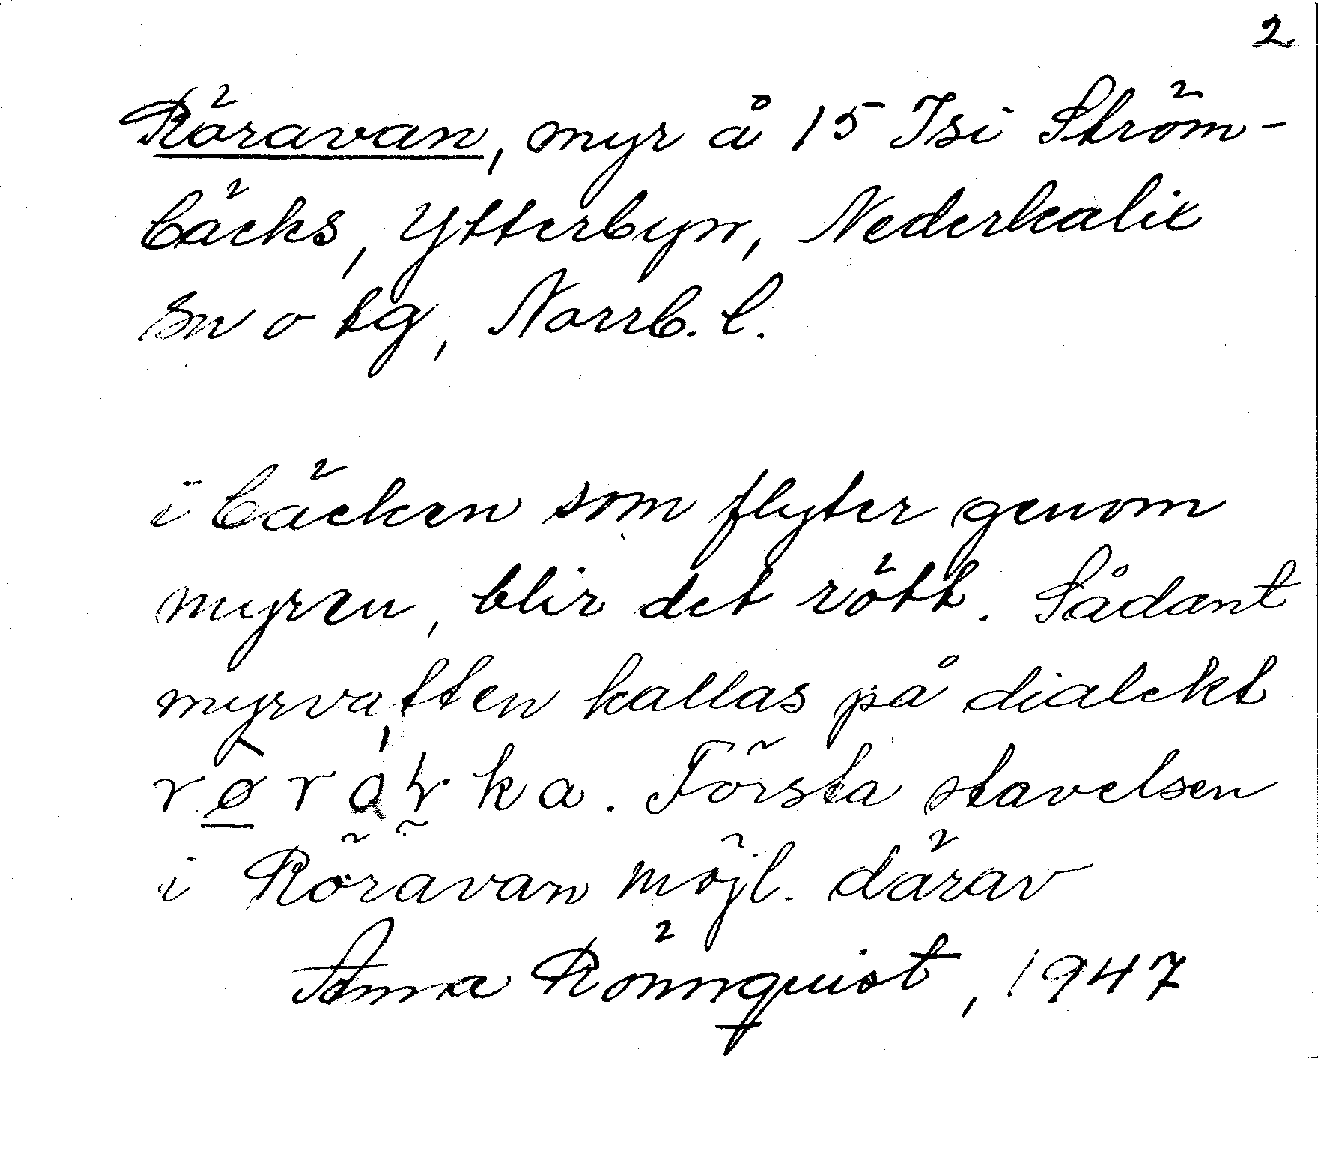 2
Röravan, myr å 15 Isi Ström-
bäcks, Ytterbyn, Nederkalix
sn o tg, Norrb. l.
i bäcken som flyter genom
myren, blir det rött. Sådant
myrvatten kallas på dialekt
. Första stavelsen
i Röravan möjl. därav
Anna Rönnquist, 1947